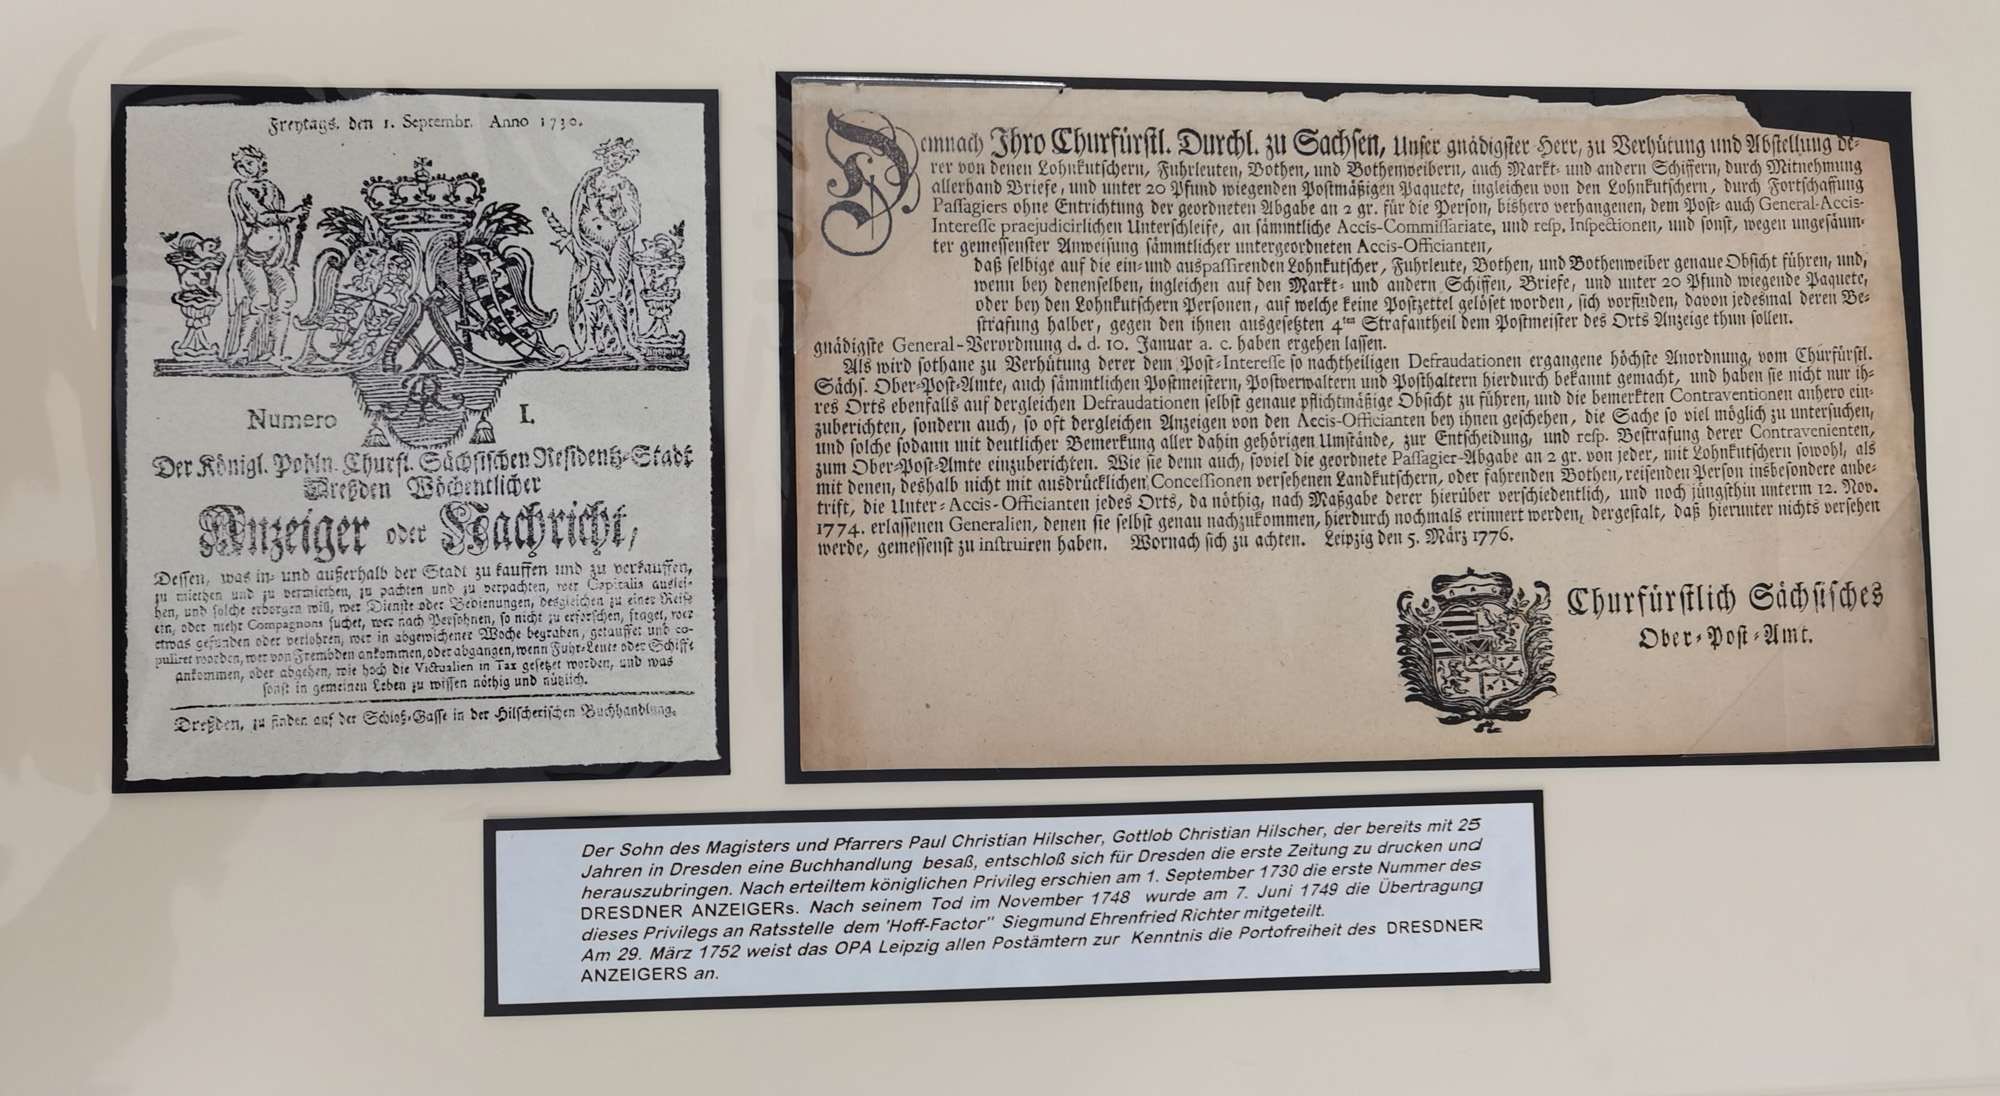 Freytags, den 1. Septembr. Anno 1730.
Numero I.
Der Königl. Pohln. Churfl. Sächsischen Residentz-Stadt
Dreßden Wöchentlicher
Anzeiger oder Nachricht,
Dessen, was in- und außerhalb der Stadt zu kauffen und zu verkauffen,
zu miethen und zu vermiethen, zu pachten und zu verpachten, wer Capitalia auslei-
hen, und solche erborgen will, wer Dienste oder Bedienungen, desgleichen zu einer Reise
ein, oder mehr Compagnons suchet, wer nach Persohnen, so nicht zu erforschen, fraget, wer
etwas gefunden oder verlohren, wer in abgewichener Woche begraben, getauffet und co-
puliret worden, wer von Frembden ankommen, oder abgangen, wenn Fuhr-Leute oder Schiffe
ankommen, oder abgehen, wie hoch die Victualien in Tax gesetzet worden, und was
sonst in gemeinen Leben zu wissen nöthig und nützlich.
Dreßden, zu finden auf der Schloß-Gasse in der Hilscherischen Buchhandlung.
Demnach Ihro Churfürstl. Durchl. zu Sachsen, Unser gnädigster Herr, zu Verhütung und Abstellung de-
rer von denen Lohnkutschern, Fuhrleuten, Bothen, und Bothenweibern, auch Markt- und andern Schiffern, durch Mitnehmung
allerhand Briefe, und unter 20 Pfund wiegenden Postmäßigen Paquete, ingleichen von den Lohnkutschern, durch Fortschaffung
Passagiers ohne Entrichtung der geordneten Abgabe an 2 gr. für die Person, bishero verhangenen, dem Post- auch General-Accis-
Interesse praejudicirlichen Unterschleife, an sämmtliche Accis-Commissariate, und resp. Inspectionen, und sonst, wegen ungesäum-
ter gemessenster Anweisung sämmtlicher untergeordneten Accis-Officianten,
daß selbige auf die ein- und auspassirenden Lohnkutscher, Fuhrleute, Bothen, und Bothenweiber genaue Obsicht führen, und,
wenn bey denenselben, ingleichen auf den Markt- und andern Schiffen, Briefe, und unter 20 Pfund wiegende Paquete,
oder bey den Lohnkutschern Personen, auf welche keine Postzettel gelöset worden, sich vorfinden, davon jedesmal deren Be-
strafung halber, gegen den ihnen ausgesetzten 4ten Strafantheil dem Postmeister des Orts Anzeige thun sollen.
gnädigste General-Verordnung d. d. 10. Januar a. c. haben ergehen lassen.
Als wird sothane zu Verhütung derer dem Post-Interesse so nachtheiligen Defraudationen ergangene höchste Anordnung, vom Churfürstl.
Sächs. Ober-Post-Amte, auch sämmtlichen Postmeistern, Postverwaltern und Posthaltern hierdurch bekannt gemacht, und haben sie nicht nur ih-
res Orts ebenfalls auf dergleichen Defraudationen selbst genaue pflichtmäßige Obsicht zu führen, und die bemerkten Contraventionen anhero ein-
zuberichten, sondern auch, so oft dergleichen Anzeigen von den Accis-Officianten bey ihnen geschehen, die Sache so viel möglich zu untersuchen,
und solche sodann mit deutlicher Bemerkung aller dahin gehörigen Umstände, zur Entscheidung, und resp. Bestrafung derer Contravenienten,
zum Ober-Post-Amte einzuberichten. Wie sie denn auch, soviel die geordnete Passagier-Abgabe an 2 gr. von jeder, mit Lohnkutschern sowohl, als
mit denen, deshalb nicht mit ausdrücklichen Concessionen versehenen Landkutschern, oder fahrenden Bothen, reisenden Person insbesondere anbe-
trift, die Unter-Accis-Officianten jedes Orts, da nöthig, nach Maßgabe derer hierüber verschiedentlich, und noch jüngsthin unterm 12. Nov.
1774. erlassenen Generalien, denen sie selbst genau nachzukommen, hierdurch nochmals erinnert werden, dergestalt, daß hierunter nichts versehen
werde, gemessenst zu instruiren haben. Wornach sich zu achten. Leipzig den 5. März 1776.
Churfürstlich Sächsisches
Ober-Post-Amt.
Der Sohn des Magisters und Pfarrers Paul Christian Hilscher, Gottlob Christian Hilscher, der bereits mit 25
Jahren in Dresden eine Buchhandlung besaß, entschloß sich für Dresden die erste Zeitung zu drucken und
herauszubringen. Nach erteiltem königlichen Privileg erschien am 1. September 1730 die erste Nummer des
DRESDNER ANZEIGERs. Nach seinem Tod im November 1748 wurde am 7. Juni 1749 die Übertragung
dieses Privilegs an Ratsstelle dem 'Hoff-Factor" Siegmund Ehrenfried Richter mitgeteilt.
Am 29. März 1752 weist das OPA Leipzig allen Postämtern zur Kenntnis die Portofreiheit des DRESDNER
ANZEIGERS an.